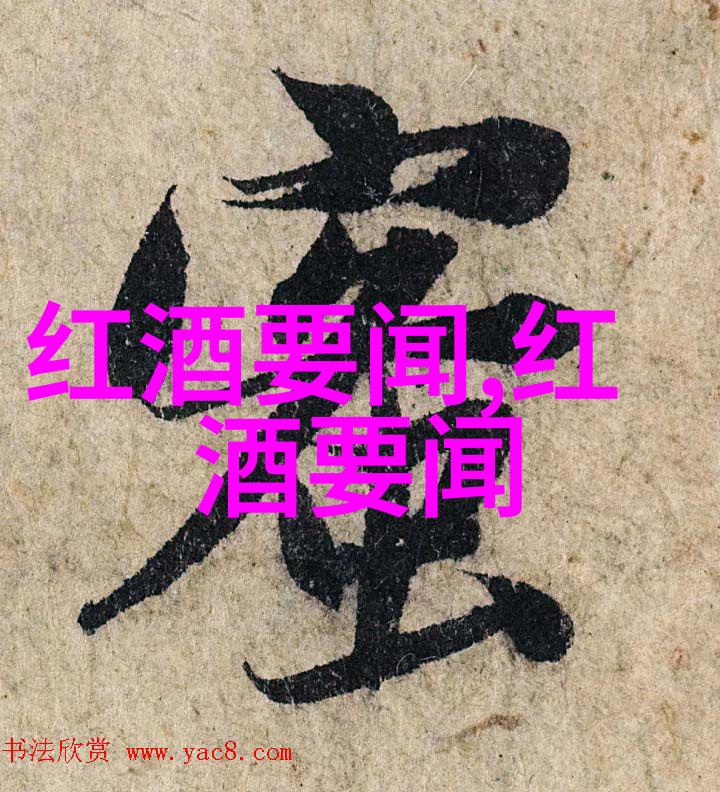 红酒要闻,红
酒要闻
书法欣赏 www.yac8.com